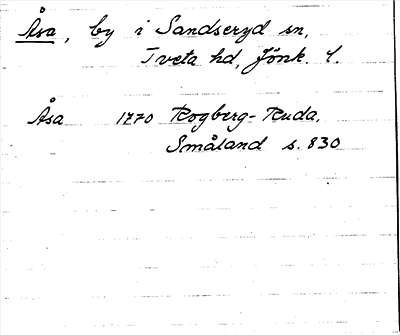 Åsa, by i Sandseryd sn,
Tveta hd, Jönk. l.
Åsa 1770 Rogberg-Ruda,
Småland s. 830